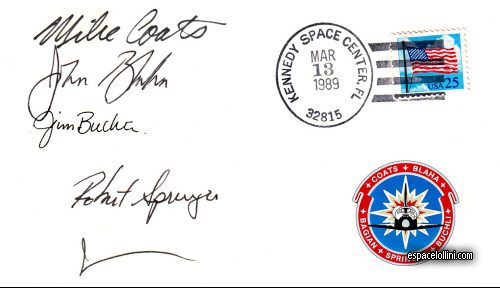 Mike Coats
John Blaha
Jim Buchli
Robert Springer
KENNEDY SPACE CENTER, FL
MAR
13
1989
32815
USA 25
COATS BLAHA
BAGIAN SPRI BUCHLI
espacelollini.com